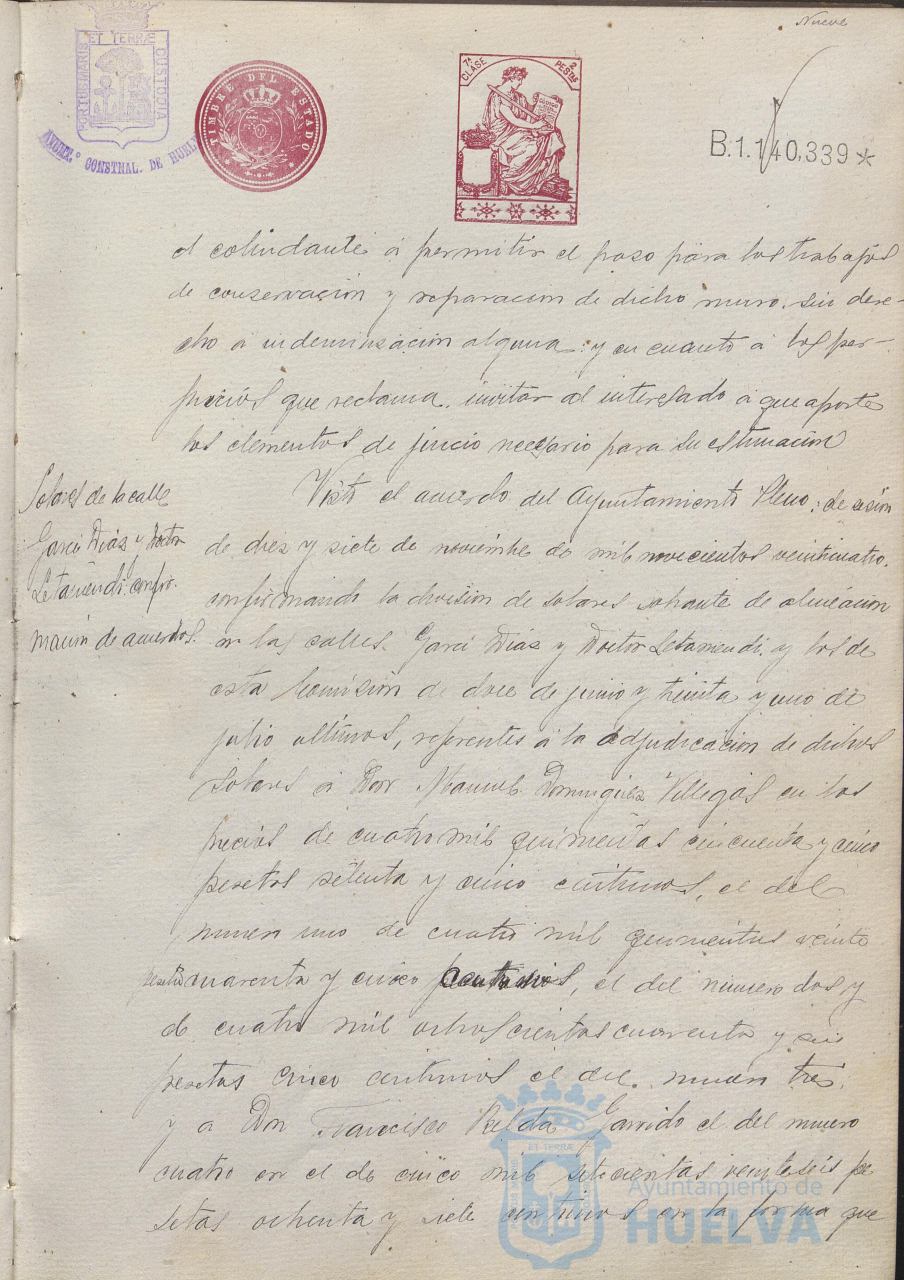 Nueve
PORTUS MARIS ET TERRÆ CUSTODIA
AYUNT.º CONSTNAL. DE HUELVA
TIMBRE DEL ESTADO
7ª CLASE
2 PESTAS
B.1.140,339*
el colindante á permitir el paso para los trabajos
de conservación y reparación de dicho muro. sin dere-
cho á indemnización alguna: y en cuanto á los per-
juicios que reclama. invitar al interesado a que aporte
los elementos de juicio necesario para su estimación
Solares de la calle
Garci Díaz y Doctor
Letamendi. confir
mación de acuerdos.
Visto el acuerdo del Ayuntamiento Pleno, de sesión
de diez y siete de noviembre de mil novecientos veinticuatro.
confirmando la división de solares sobrante de alineación
en las calles. Garci Díaz y Doctor Letamendi. y los de
esta Comisión de doce de junio y treinta y uno de
julio ultimos, referentes á la adjudicación de dichos
solares á Don Manuel Dominguez Villegas en los
precios de cuatro mil quinientas cincuenta y cinco
pesetas setenta y cinco centimos, el del
numero uno de cuatro mil quinientas veinte
pesetas cuarenta y cinco centimos, el del número dos y
de cuatro mil ochocientas cuarenta y seis
pesetas cinco centimos el del numero tres.
y a Don Francisco Garrido el del numero
cuatro en el de cinco mil setecientas veintiseis pe
setas ochenta y siete centimos en la forma que
Ayuntamiento de
HUELVA